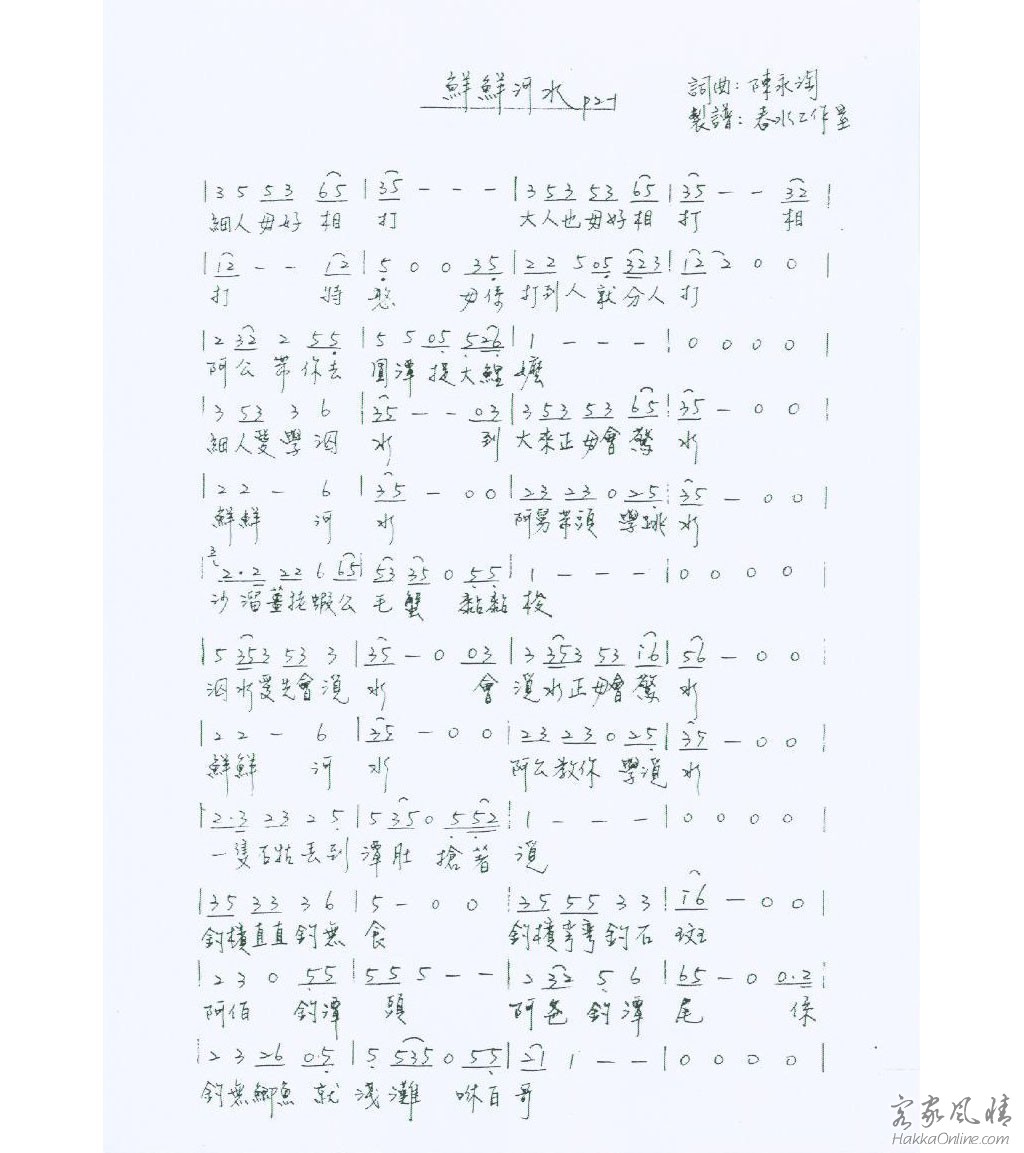 鮮鮮河水 p2-1
詞曲:陳永淘
製譜:春水工作室
|3 5 53 65|35 - - -|3 53 53 65|35 - - 32|
細人毋好相 打 大人也毋好相 打 相
|12 - - 12|5 0 0 35|22 5 05 323|12 2 0 0|
打 特 憨 毋係 打到人就分人 打
|2 32 2 55|5 5 05 526|1 - - -|0 0 0 0|
阿公帶你去 圓潭捉大鯉 嬤
|3 53 3 6|35 - - 03|3 53 53 65|35 - 0 0|
細人愛學泅 水 到 大來正毋會驚 水
|2 2 - 6|35 - 0 0|23 23 0 25|35 - 0 0|
鮮鮮 河 水 阿舅帶頭 學跳 水
|2·2 22 6 65|53 35 0 55|1 - - -|0 0 0 0|
沙溜 蝦公 毛蟹 黏黏 梭
|5 353 53 3|35 - 0 03|3 353 53 i6|56 - 0 0|
泅水愛先會 水 會 水正毋會驚 水
|2 2 - 6|35 - 0 0|23 23 0 25|35 - 0 0|
鮮鮮 河 水 阿公教你 學 水
|2·3 23 2 5|5 35 0 5 52|1 - - -|0 0 0 0|
一隻石牯丟到 潭肚 搶著
|35 33 3 6|5 - 0 0|35 55 3 3|i6 - 0 0|
釣檳直直釣無 食 釣檳彎彎釣石 斑
|2 3 0 55|55 5 - -|2 32 5 6|65 - 0 0·2|
阿伯 釣潭 頭 阿爸釣潭 尾 係
|2 3 26 0·5|5 535 0 55|21 1 - -|0 0 0 0|
釣無鯽魚 就 淺灘 咻百 哥
客家風情
HakkaOnline.com